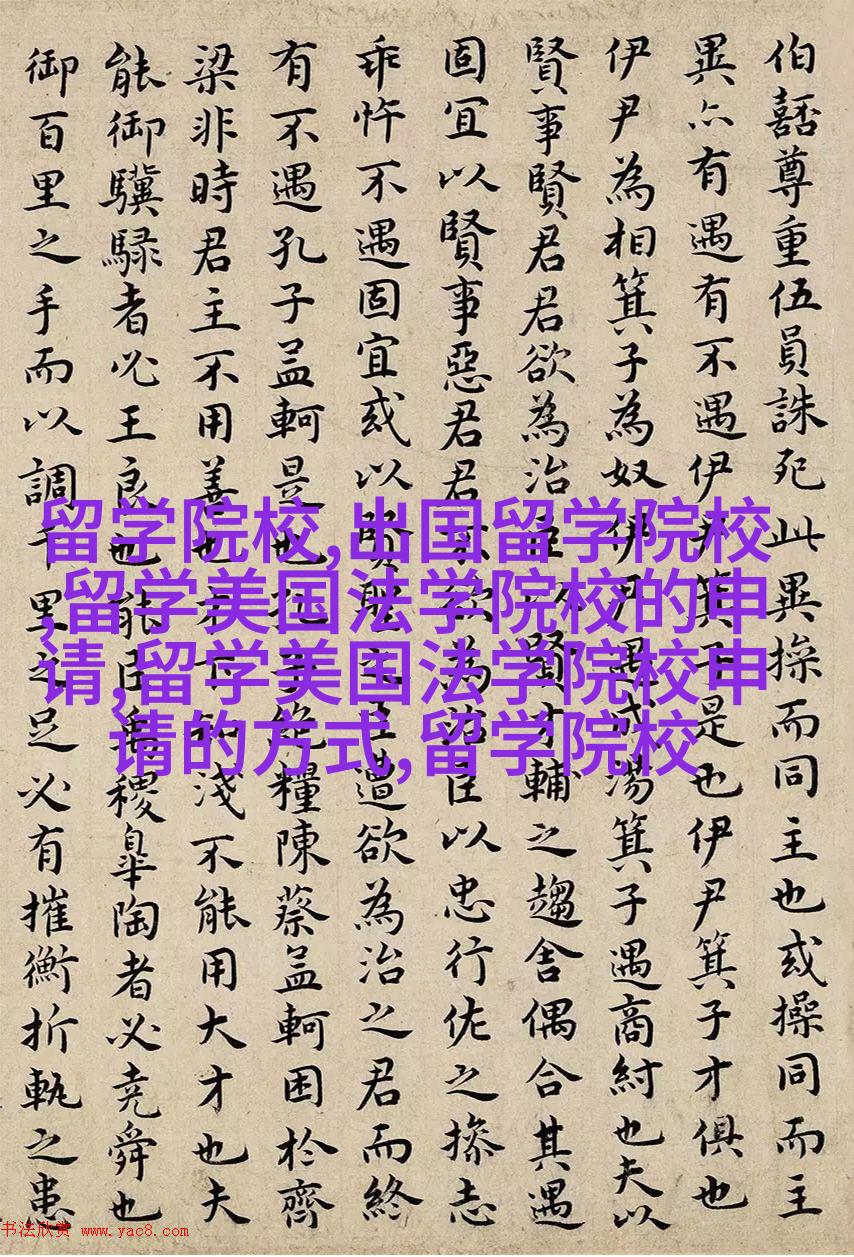 伯嚭尊重伍員誅死此異操而同主也或操同而主
異亦有遇有不遇伊尹箕子是也伊尹箕子才俱也
伊尹為相箕子為奴伊尹遇成湯箕子遇商紂也夫以
賢事賢君君欲為治臣以賢才輔之趨舍偶合其遇
固宜以賢事惡君君不欲為治臣以忠行佐之操志
乖忤不遇固宜或以賢聖之臣遭欲為治之君而終
有不遇孔子孟軻是也孔子絕糧陳蔡孟軻困於齊
梁非時君主不用善也才下知淺不能用大才也夫
能御驥騄者必王良也能臣禹稷皋陶者必堯舜也
御百里之手而以調千里之足必有摧衡折軛之患
留学院校,出国留学院校
,留学美国法学院校的申
请,留学美国法学院校申
请的方式,留学院校
书法欣赏 www.yac8.com